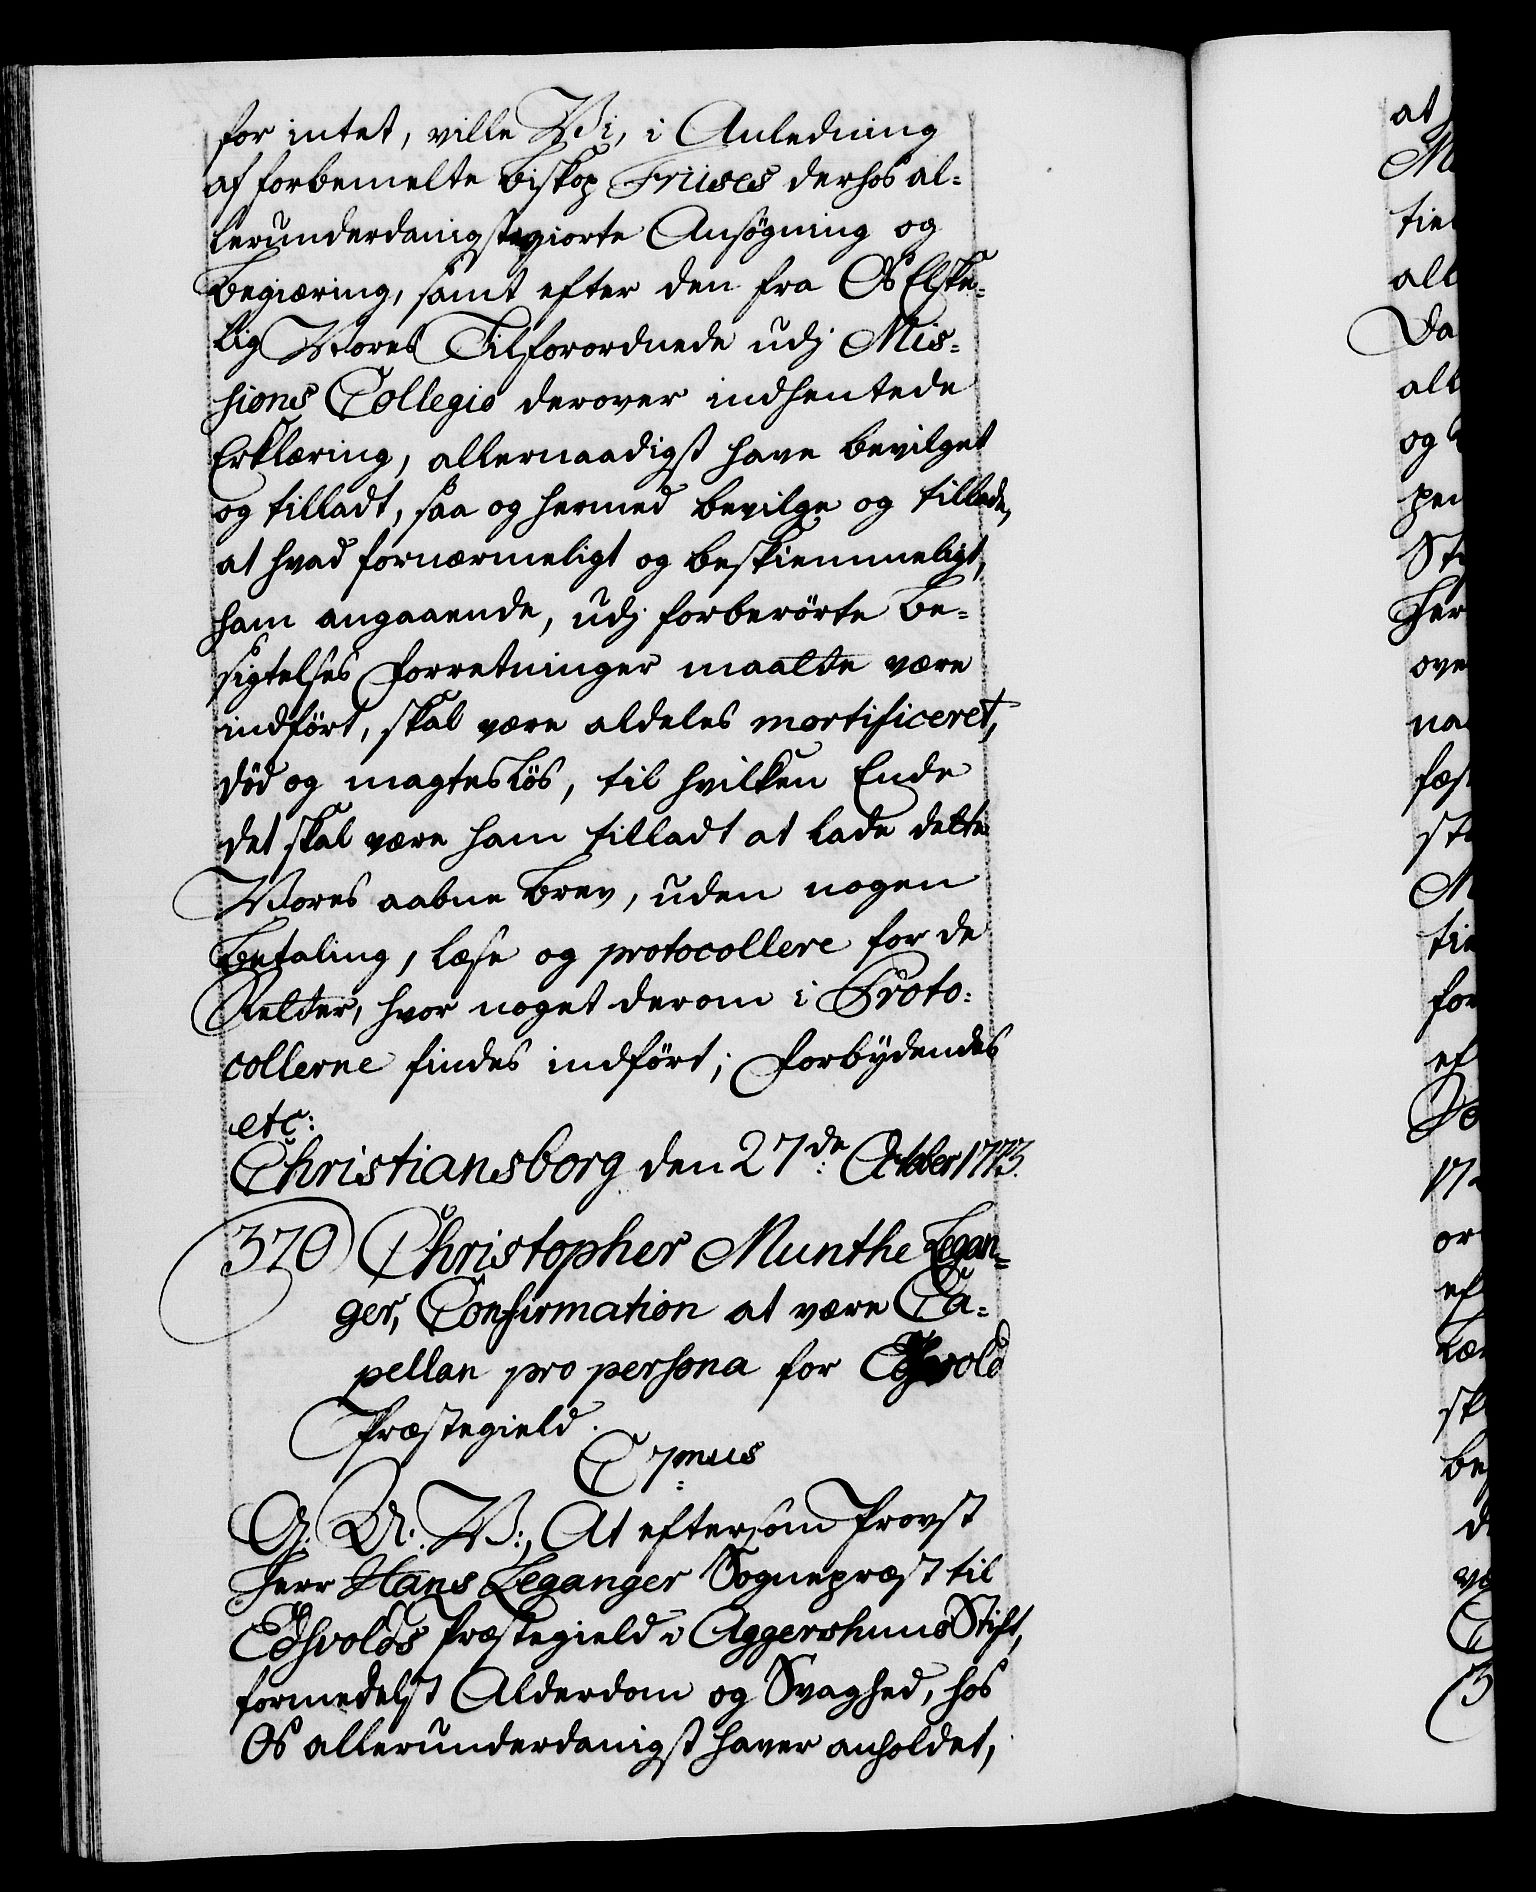 for intet, ville Vi, i Anledning
af forbemelte Biskop Friises derhos al-
lerunderdanigst giorte Ansøgning og
Begiæring, samt efter den fra Os Elske-
lig Vores Tilforordnede udj Mis-
sions Collegio derover indhentede
Erklæring, allernaadigst have bevilget
og tilladt, saa og hermed bevilge og tillade,
at hvad fornærmeligt og beskiemmeligt,
ham angaaende, udj forberørte Be-
sigtelses Forretninger maatte være
indført, skal være aldeles mortificeret,
død og magtesløs, til hvilken Ende
det skal være ham tilladt at lade dette
Vores aabne Brev, uden nogen
Betaling, læse og protocollere for de
Retter, hvor noget derom i Proto-
collerne findes indført; Forbydendes
etc:
Christiansborg den 27de: October
370 Christopher Munthe Legan-
ger, Confirmation at være Ca-
pellan pro persona for Edsvold
Præstegield.
C 7mus
G. A. V:, At eftersom Provst
Herr Hans Leganger Sognepræst til
Edsvolds Præstegield i Aggershuus Stift,
formedelst Alderdom og Svaghed, hos
Os allerunderdanigst haver anholdet,